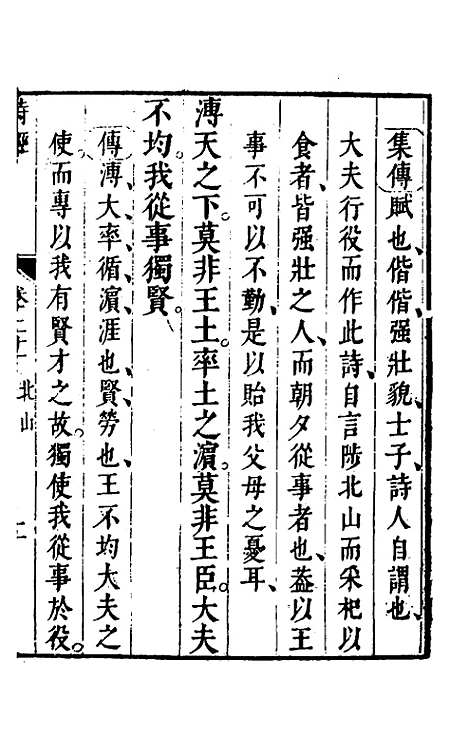 集傳賦也、偕偕强壯貌、士子、詩人自謂也、
大夫行役而作此詩、自言陟北山而采杞以
食者、皆强壯之人、而朝夕從事者也、葢以王
事不可以不勤、是以貽我父母之憂耳、
溥天之下。莫非王土。率土之濵。莫非王臣。大夫
不均。我從事獨賢。
傳溥、大率循濵、涯也、賢勞也、王不均大夫之
使、而專以我有賢才之故。獨使我從事於役。
詩經
卷二十 北山
二